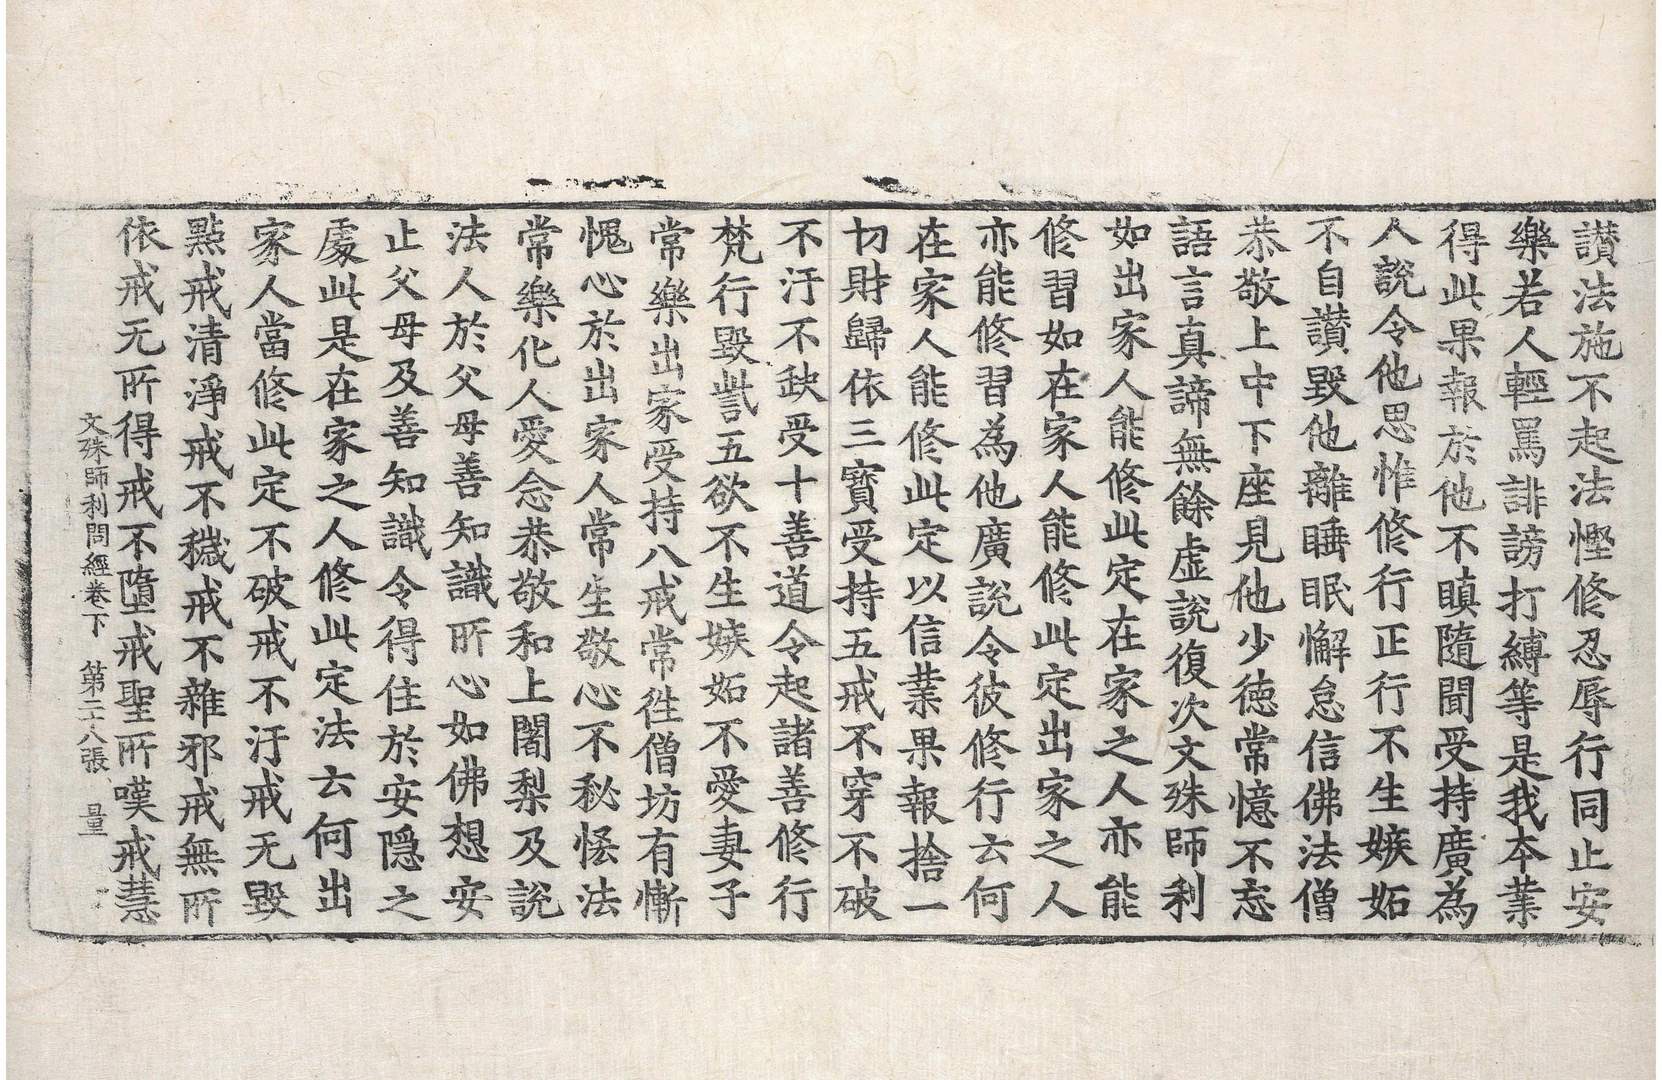 讃法施不起法慳修忍辱行同止安
樂若人輕罵誹謗打縛等是我夲業
得此果報於他不瞋隨聞受持廣為
人說令他思惟修行正行不生嫉妬
不自讃毀他離睡眠懈怠信佛法僧
恭敬上中下座見他少德常憶不忘
語言真諦無餘虛說復次文殊師利
如出家人能修此定在家之人亦能
修習如在家人能修此定出家之人
亦能修習為他廣說令彼修行云何
在家人能修此定以信業果報捨一
切財歸依三寳受持五戒不穿不破
不汙不缺受十善道令起諸善修行
梵行毀訾五欲不生嫉妬不愛妻子
常樂出家受持八戒常徃僧坊有慚
愧心於出家人常生敬心不秘悋法
常樂化人愛念恭敬和上闍梨及說
法人於父母善知識所心如佛想安
止父母及善知識令得住於安隱之
處此是在家之人修此定法云何出
家人當修此定不破戒不汙戒无毀
點戒清淨戒不穢戒不雜邪戒無所
依戒无所得戒不墮戒聖所嘆戒慧
文殊師利問經卷下 第二八張 量